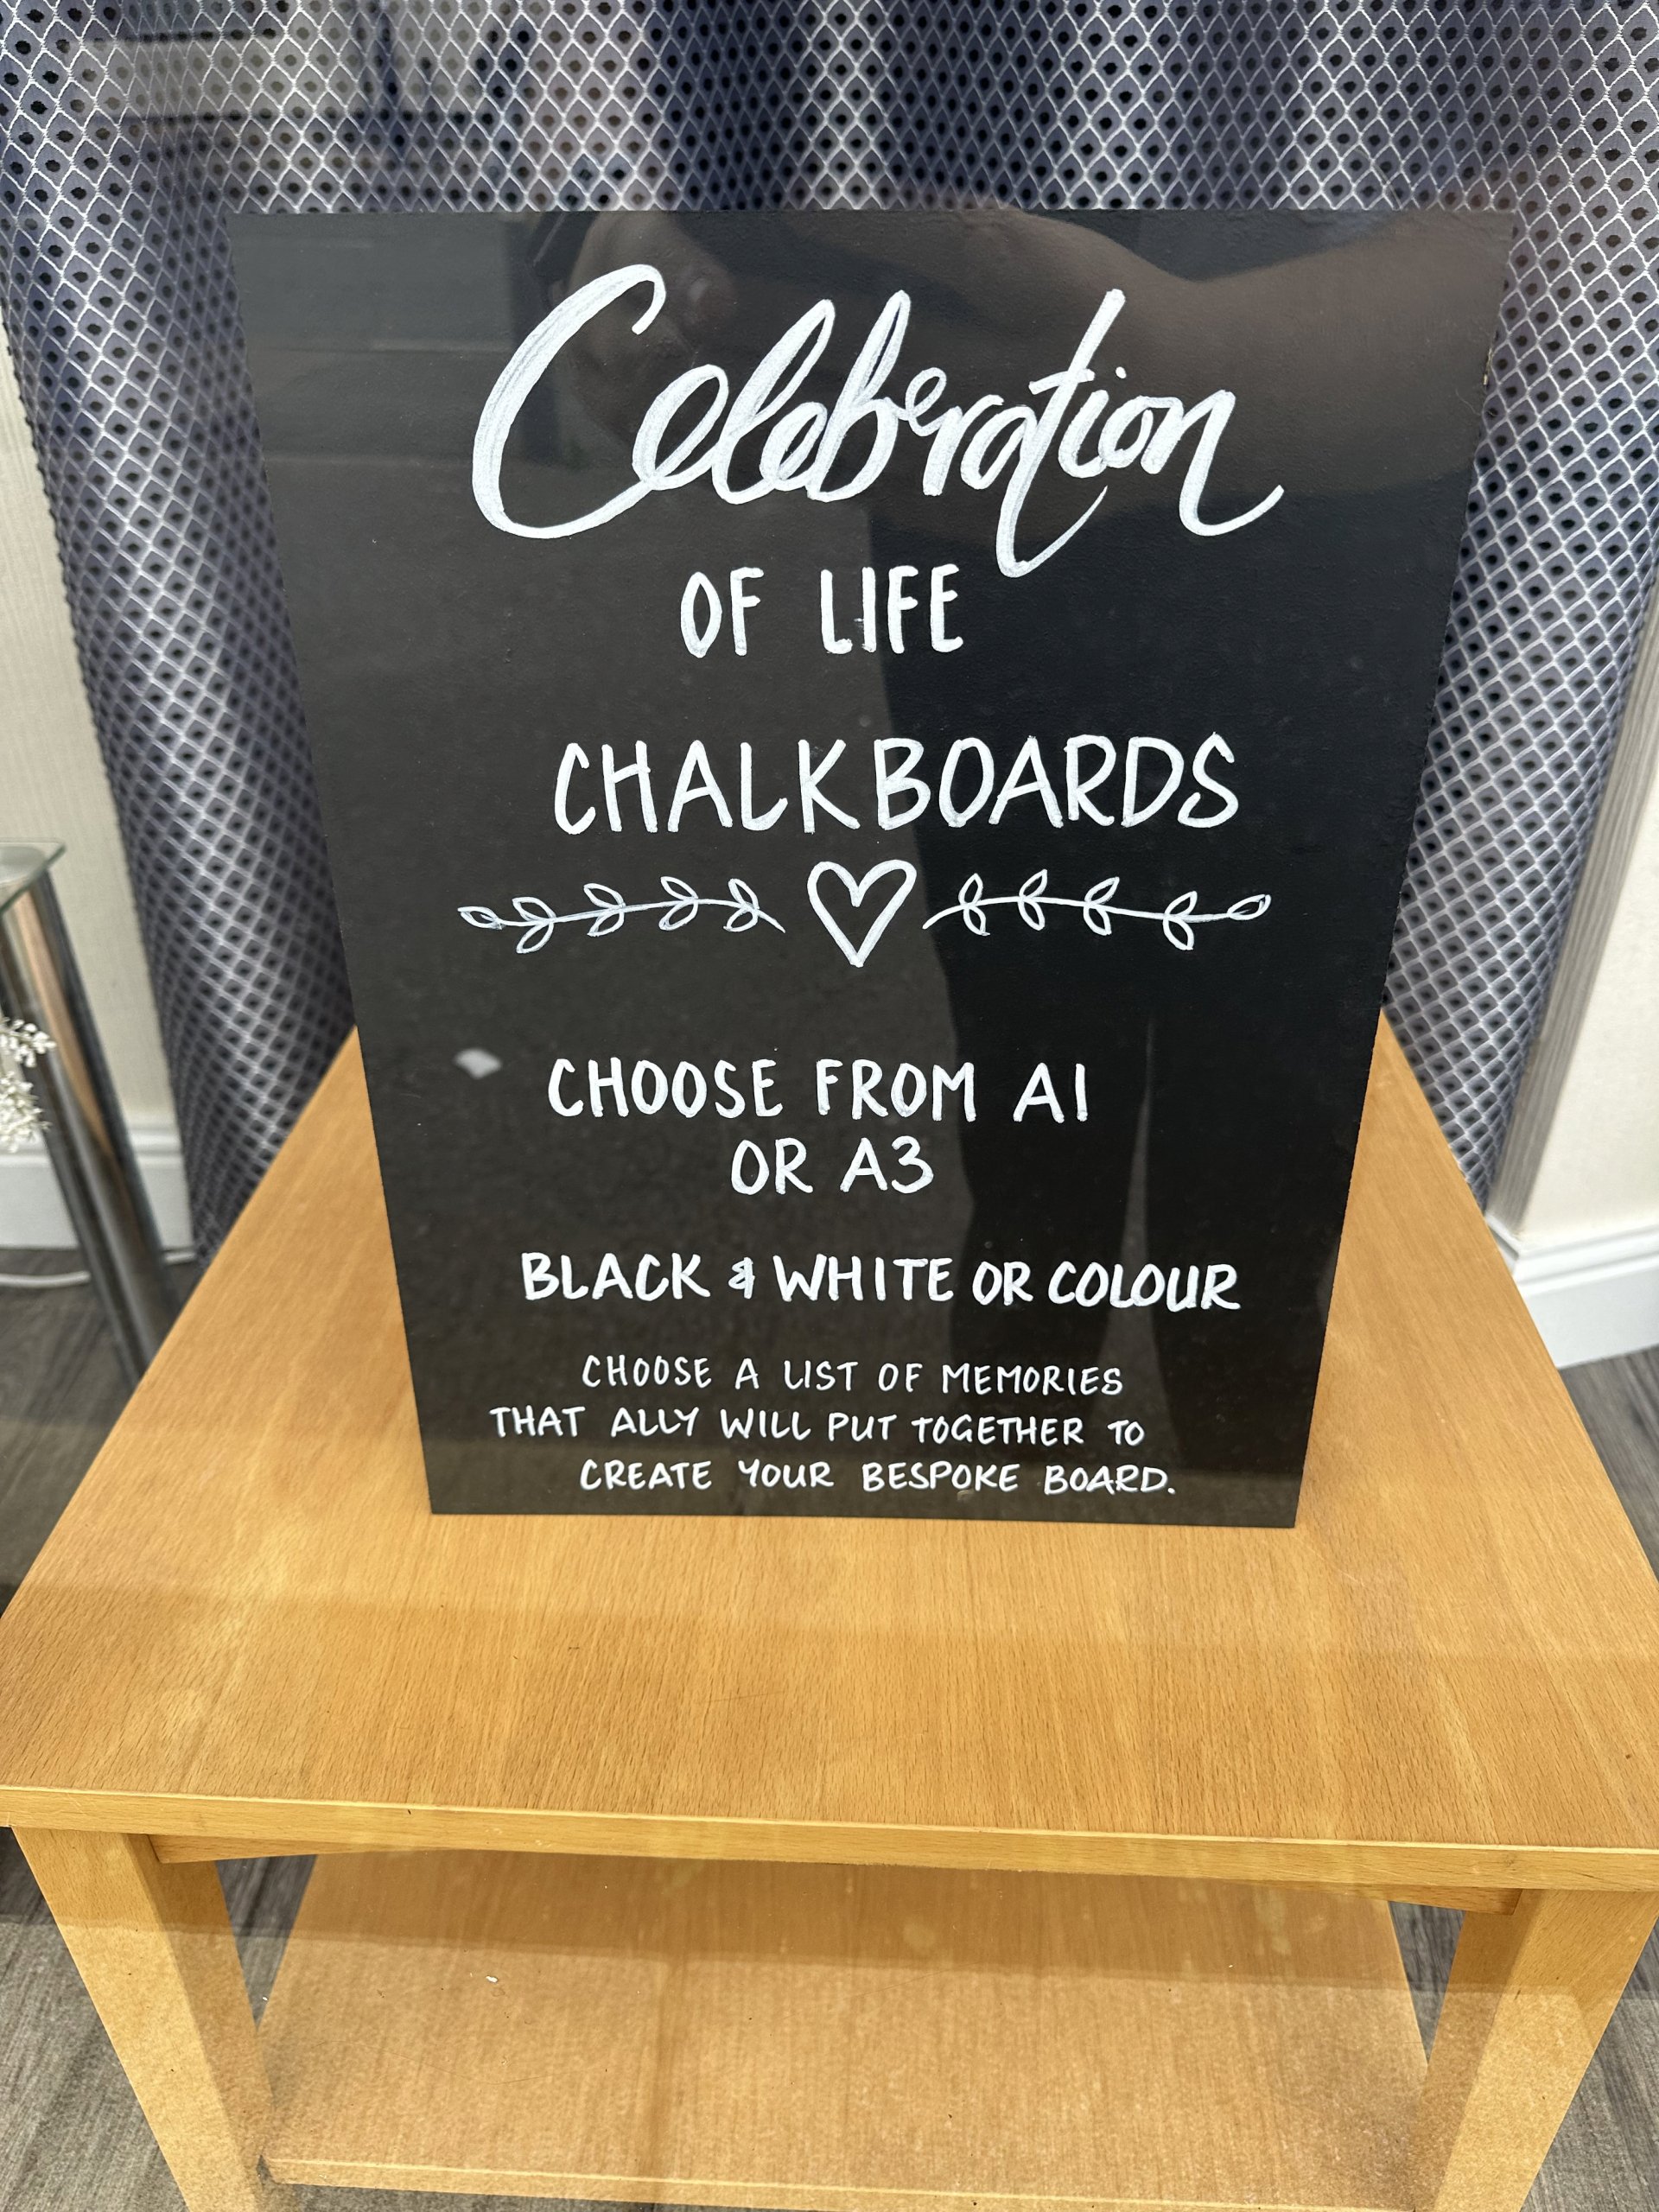 Celeberation
OF LIFE
CHALKBOARDS
CHOOSE FROM A1
OR A3
BLACK & WHITE OR COLOUR
CHOOSE A LIST OF MEMORIES
THAT ALLY WILL PUT TOGETHER TO
CREATE YOUR BESPOKE BOARD.